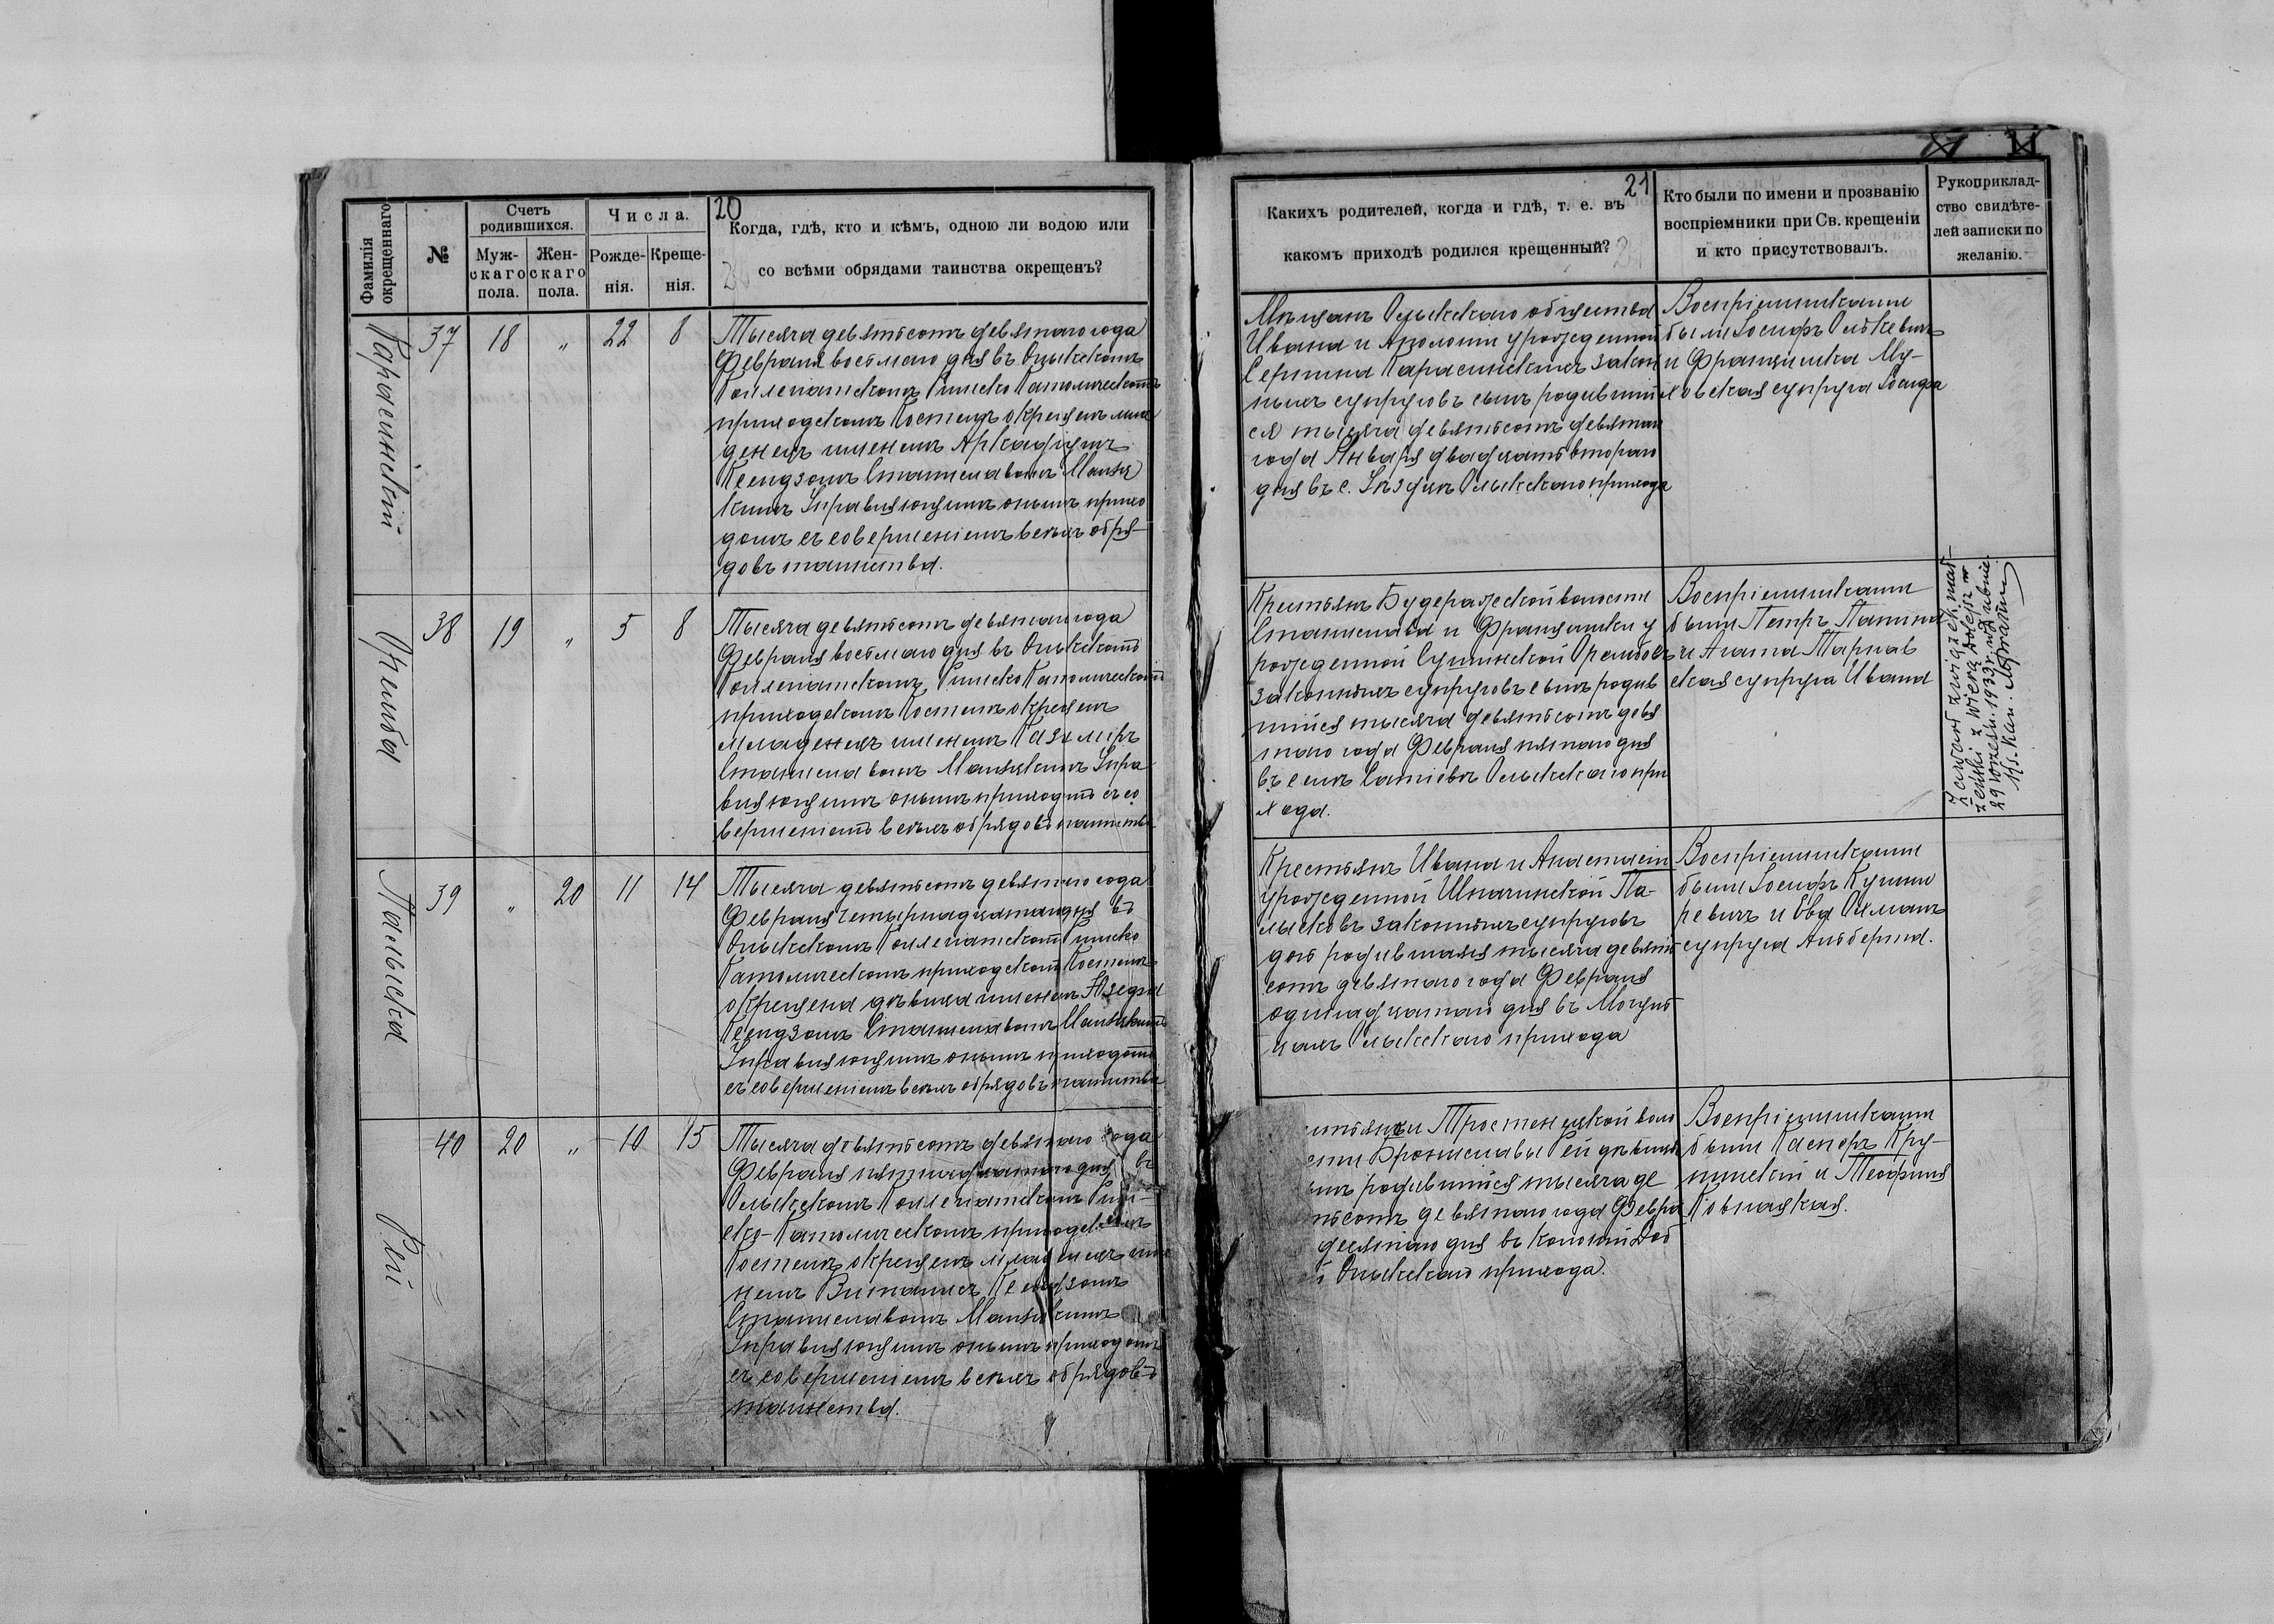 20
Фамилія окрещеннаго
№
Счетъ родившихся.
Муж-
скаго
пола.
Жен-
скаго
пола.
Числа.
Рожде-
нія.
Креще-
нія.
Когда, гдѣ, кто и кѣмъ, одною ли водою или
со всѣми обрядами таинства окрещенъ?
Карасинскій
37
18
„
22
8
Тысяча девятьсотъ девятаго года
Февраля восьмаго дня въ Олыкскомъ
Коллегіатскомъ Римско Католическомъ
приходскомъ Костелѣ окрещенъ мла
денецъ именемъ Аркадіушъ
Ксендзомъ Станиславомъ
Управляющимъ онымъ прихо
домъ съ совершеніемъ всѣхъ обря-
довъ таинства.
38
19
„
5
8
Тысяча девятьсотъ девятаго года
Февраля восьмаго дня въ Олыкскомъ
Коллегіатскомъ Римско Католическомъ
приходскомъ Костелѣ окрещенъ
младенецъ именемъ Казимиръ
Станиславомъ Упра
вляющимъ онымъ приходомъ съ со
вершеніемъ всѣхъ обрядовъ таинства
39
„
20
11
14
Тысяча девятьсотъ девятаго года
Февраля четырнадцатаго дня въ
Олыкскомъ Коллегіатскомъ Римско
Католическомъ приходскомъ Костелѣ
окрещена дѣвица именемъ Юзефа
Ксендзомъ Станиславомъ
Управляющимъ онымъ приходомъ
съ совершеніемъ всѣхъ обрядовъ таинства
Рей
40
20
„
10
15
Тысяча девятьсотъ девятаго года
Февраля пятнадцатаго дня въ
Олыкскомъ Коллегіатскомъ Рим-
ско-Католическомъ приходскомъ
Костелѣ окрещенъ младенецъ име
немъ Ксендзомъ
Станиславомъ
Управляющимъ онымъ приходомъ
съ совершеніемъ всѣхъ обрядовъ
таинства.
21
Какихъ родителей, когда и гдѣ, т. е. въ
какомъ приходѣ родился крещенный?
Кто были по имени и прозванію
воспріемники при Св. крещеніи
и кто присутствовалъ.
Рукоприклад-
ство свидѣте-
лей записки по
желанію.
Мѣщанъ Олыкскаго общества
Ивана и Аполоніи урожденной
Карасинскихъ закон
ныхъ супруговъ сынъ родивший
ся тысяча девятьсотъ девятаго
года Января двадцать втораго
дня въ с. Олыкскаго прихода
Воспріемниками
были Іосифъ
и Францишка Му-
ховская супруга Іосифа
Крестьянъ Будеражской волости
Станислава и Францишки у
рожденной
законныхъ супруговъ сынъ родив
шійся тысяча девятьсотъ девя
таго года Февраля пятаго дня
въ селѣ Олыкскаго при
хода.
Воспріемниками
были Петръ
и Агата Тарнав
ская супруга Ивана
Zawarł związek mał-
żeński z
29 wrześn. 1933r.
Ks. Kan.
Крестьянъ Ивана и Анастасіи
урожденной Шпачинской Па-
лысковъ законныхъ супруговъ
дочь родившаяся тысяча девять
сотъ девятаго года Февраля
одинадцатаго дня въ
Олыкскаго прихода
Воспріемниками
были Іосифъ
и Ева
супруга Альберта.
Тростенецкой воло
Брониславы Рей дѣвицы
родившійся тысяча де
девятаго года Февра
десятаго дня въ колоніи
Олыкскаго прихода.
Воспріемниками
были Касперъ Кру-
пинскій и Теофиля